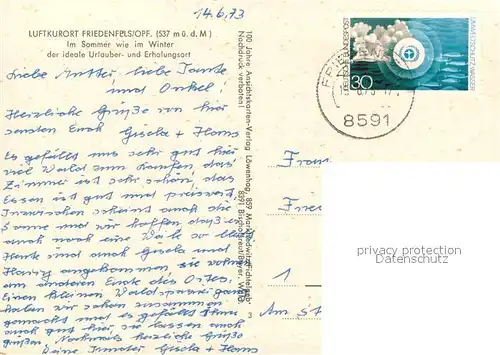 14.6.73
LUFTKURORT FRIEDENFELS/OPF. (537 m ü. d. M)
Im Sommer wie im Winter
der ideale Urlauber- und Erholungsort
Liebe Mutter, liebe Tante
und Onkel!
Herzliche Grüße von hier
senden Euch Gisela + Hans
Es gefällt uns sehr gut hier
viel Wald zum Laufen, das
Zimmer ist sehr schön, das
Essen ist gut und preiswert.
Inzwischen scheint auch die
Sonne und wir hoffen daß es
auch noch eine Weile so bleibt
Heute sind auch Gisela und
angekommen, sie wohnen
am anderen Ende des Ortes.
Einen kleinen Waldspaziergang
haben wir schon zusammen
gemacht und es gefällt Ihnen
auch gut hier, sie lassen auch
grüßen. Nochmals herzliche Grüße
Gisela + Hans
100 Jahre Ansichtskarten-Verlag Löwenhag, 859 Marktredwitz/Fichtelgeb.
Nachdruck verboten!
8391 Bischofsreut/Bayer. Wald
3
DEUTSCHE BUNDESPOST
30
UMWELTSCHUTZ: WASSER
8591
Frau
1
Am
privacy protection
Datenschutz